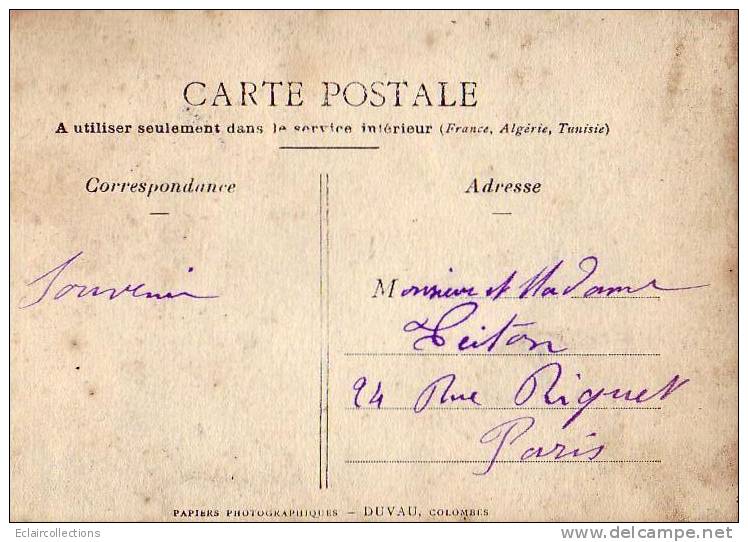 CARTE POSTALE
A utiliser seulement dans le service intérieur (France, Algérie, Tunisie)
Correspondance
Adresse
Souvenir
Monsieur et Madame
24 Rue Riquet
Paris
PAPIERS PHOTOGRAPHIQUES – DUVAU, COLOMBES
Eclaircollections
delcampe.net